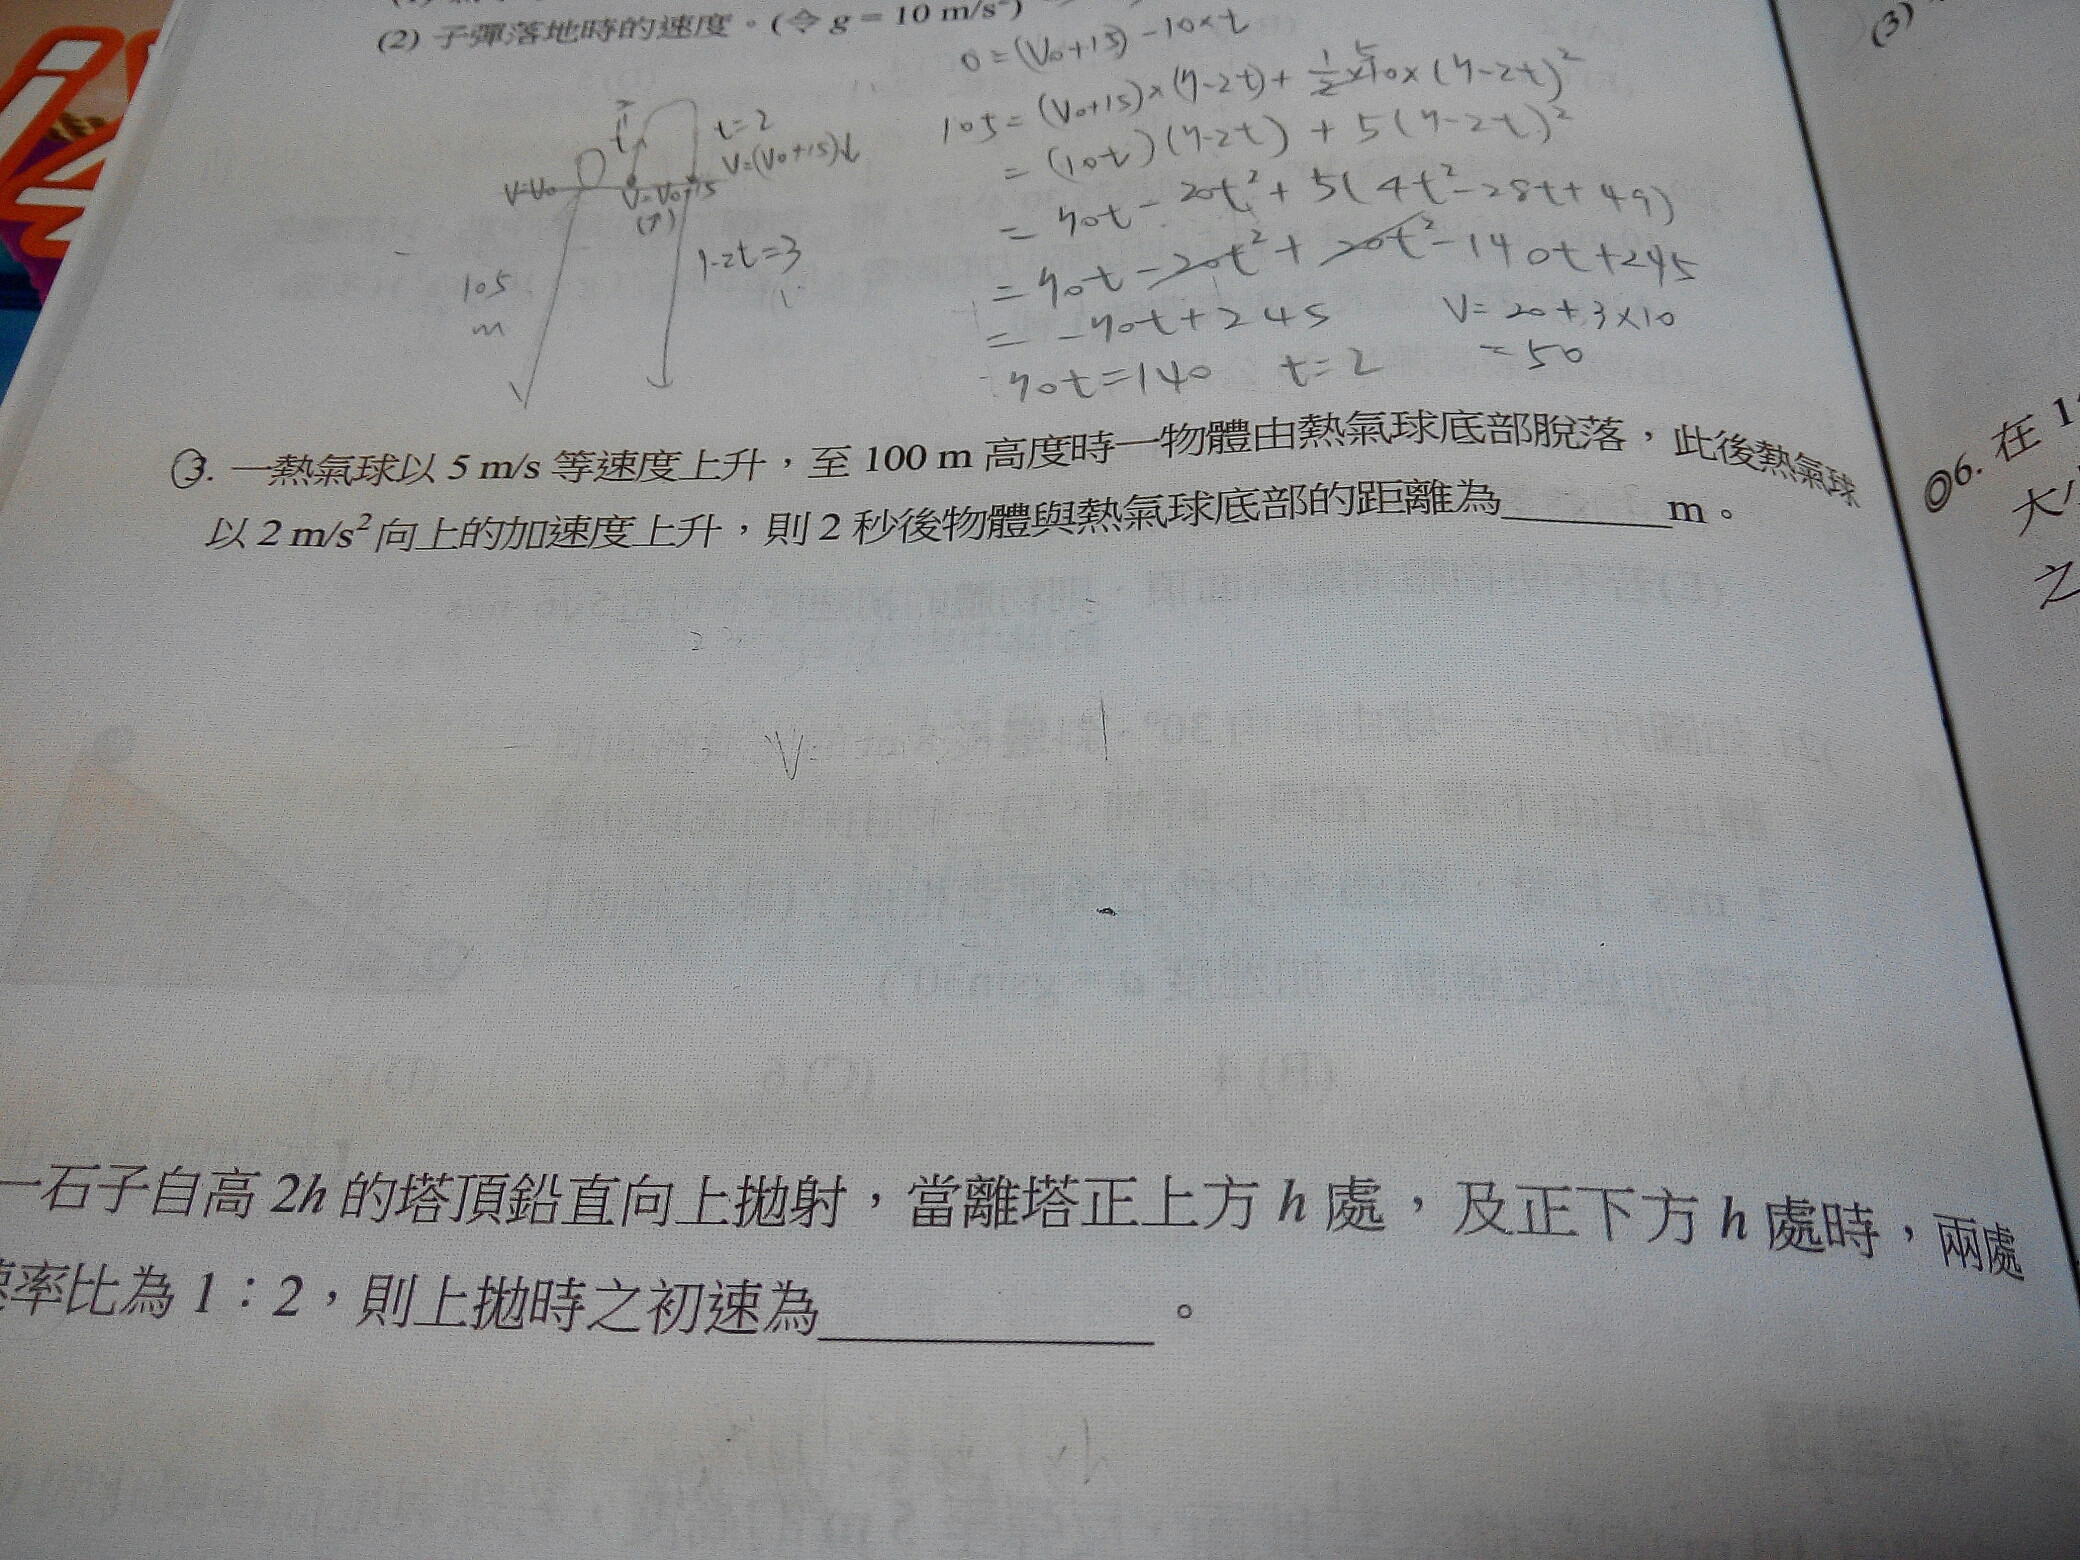 (2) 子彈落地時的速度。(令 g = 10 m/s²)
0=(V₀+15)-10×t
105=(V₀+15)×(7-2t)+½×10×(7-2t)²
=(10t)(7-2t)+5(7-2t)²
=70t-20t²+5(4t²-28t+49)
=70t-20t²+20t²-140t+245
=-70t+245
70t=140 t=2
V=20+3×10
=50
t=2
V=(V₀+15)↓
V=V₀
V=V₀+15
(↑)
7-2t=3
105
m
3. 一熱氣球以 5 m/s 等速度上升，至 100 m 高度時一物體由熱氣球底部脫落，此後熱氣球
以 2 m/s² 向上的加速度上升，則 2 秒後物體與熱氣球底部的距離為________m。
一石子自高 2h 的塔頂鉛直向上拋射，當離塔正上方 h 處，及正下方 h 處時，兩處
率比為 1：2，則上拋時之初速為____________。
(3)
◎6. 在 1
大
之